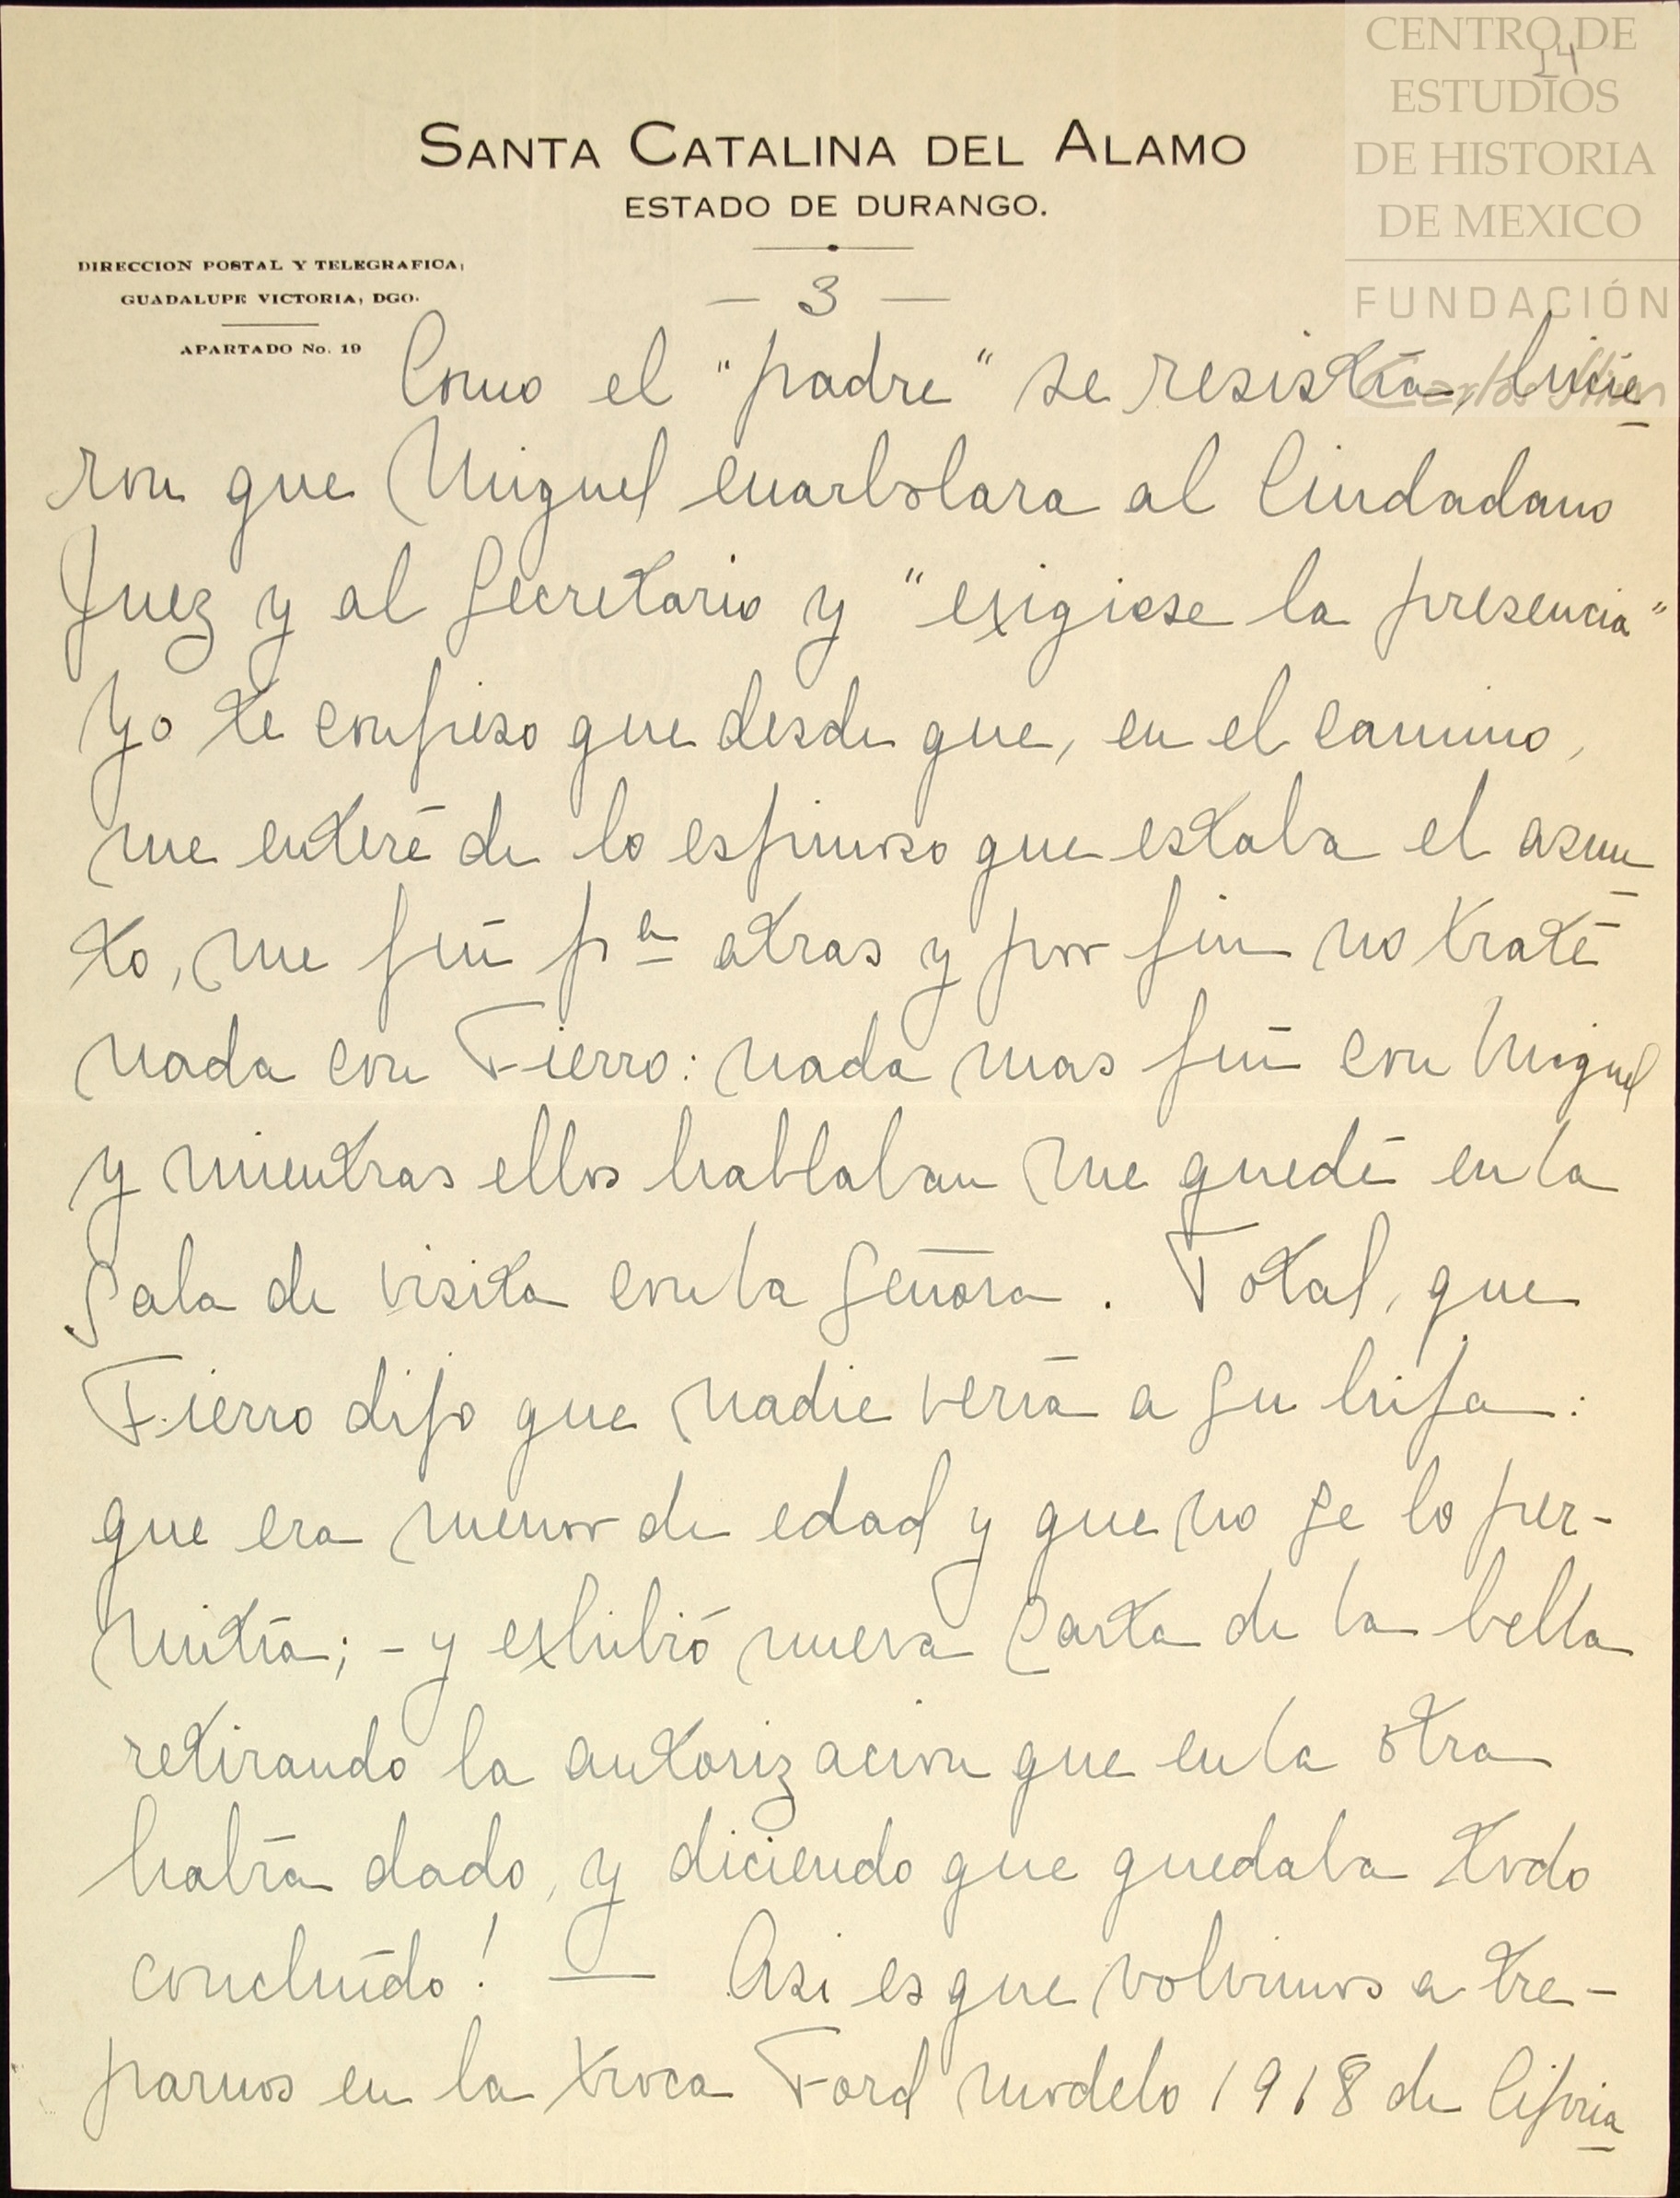 CENTRO DE
ESTUDIOS
DE HISTORIA
DE MEXICO
FUNDACIÓN
Carlos Slim
24
SANTA CATALINA DEL ALAMO
ESTADO DE DURANGO.
DIRECCION POSTAL Y TELEGRAFICA,
GUADALUPE VICTORIA, DGO.
APARTADO No. 19
— 3 —
Como el "padre" se resistía, hicie
ron que Miguel enarbolara al Ciudadano
Juez y al Secretario y "exigiese la presencia"
Yo te confieso que desde que, en el camino,
me enteré de lo espinoso que estaba el asun
to, me fuí pª atras y por fin no traté
nada con Fierro: nada mas fuí con Miguel
y mientras ellos hablaban me quedé en la
Sala de visita con la Señora. Total, que
Fierro dijo que nadie vería a su hija:
que era menor de edad y que no se lo per-
mitía; - y exhibió nueva carta de la bella
retirando la autorizacion que en la otra
había dado, y diciendo que quedaba todo
concluído! — Asi es que volvimos a tre-
parnos en la troca Ford modelo 1918 de